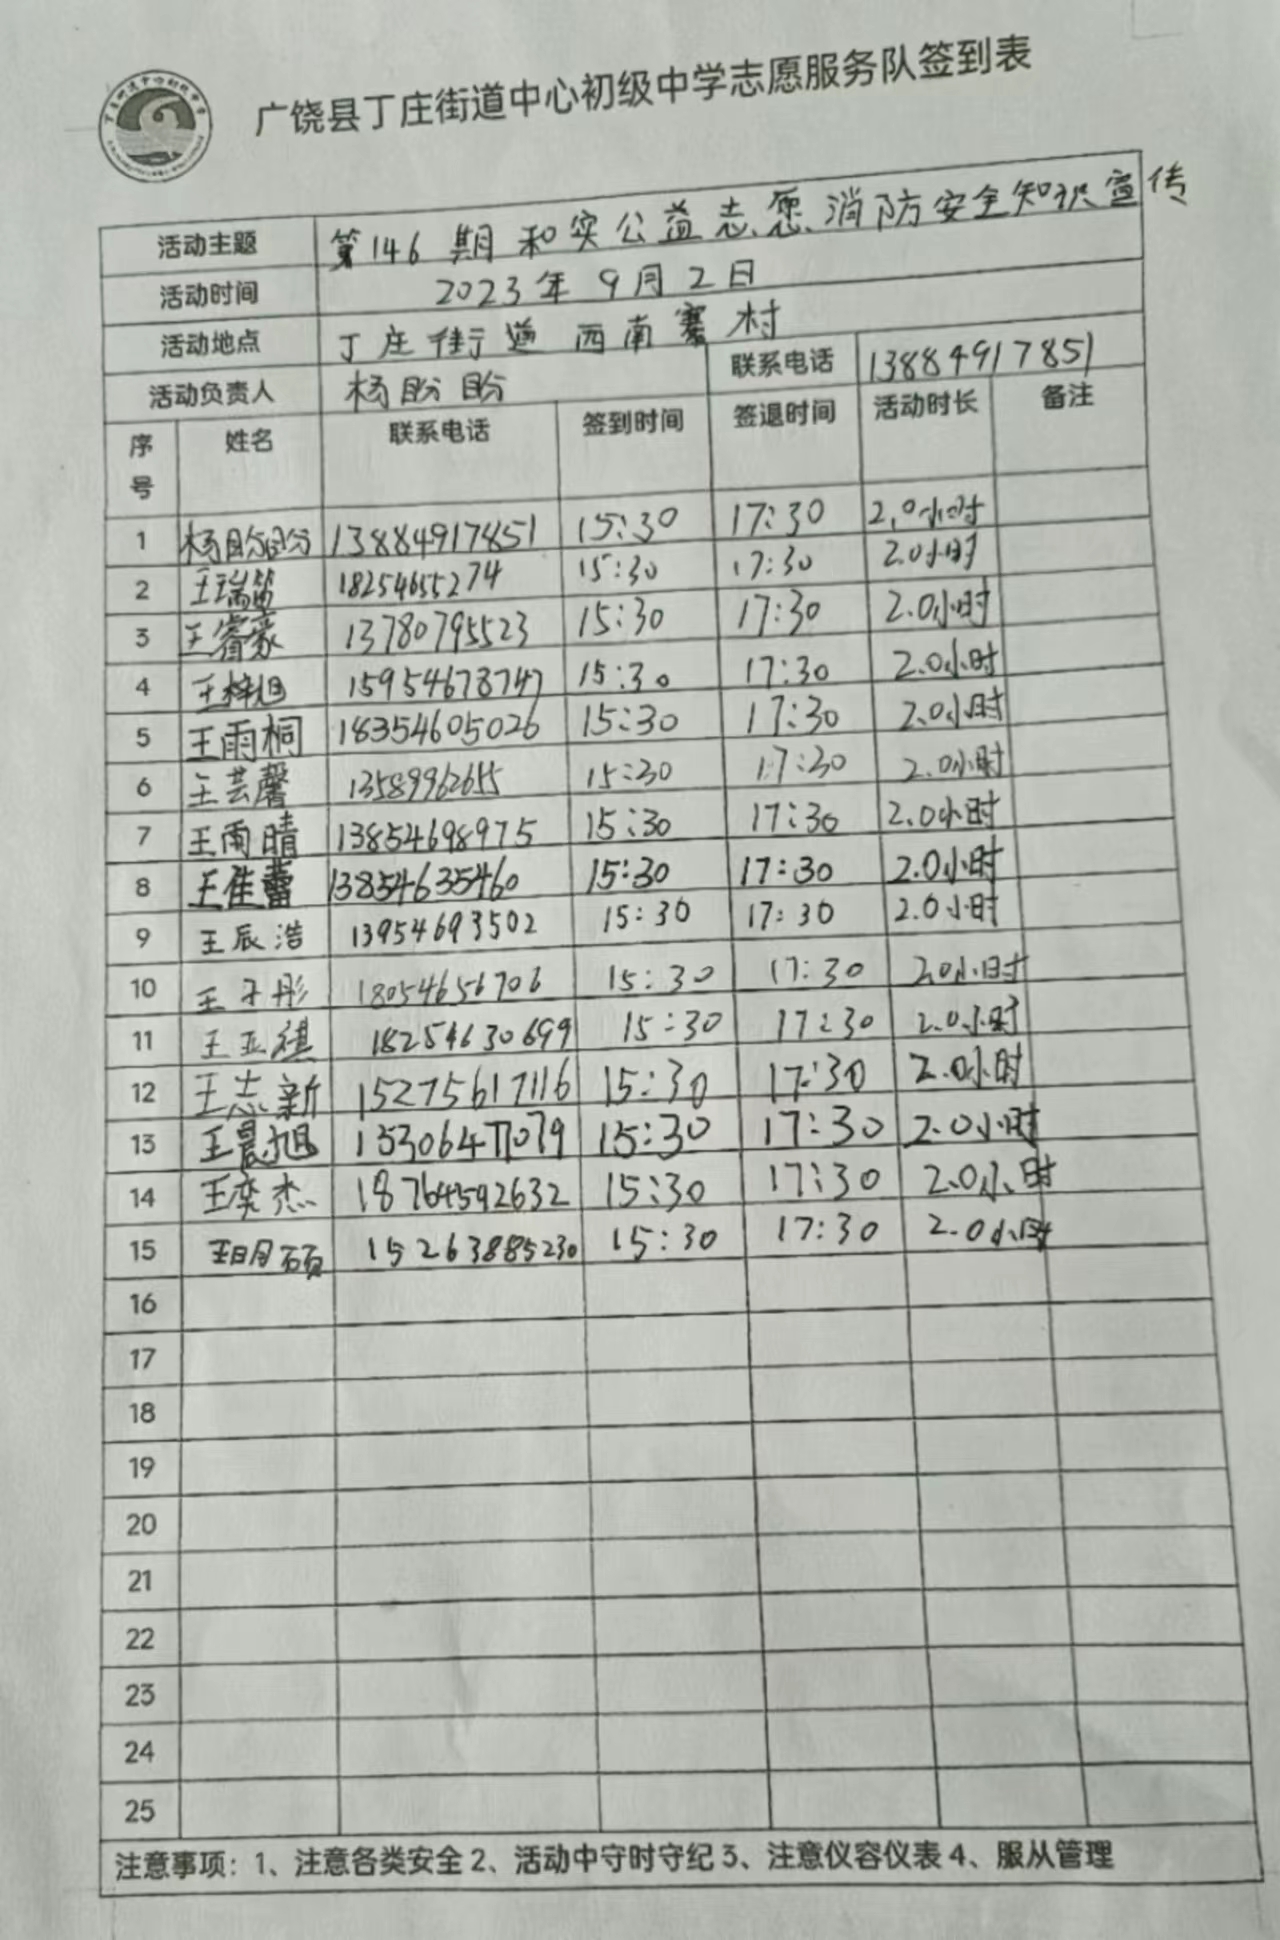 广饶县丁庄街道中心初级中学志愿服务队签到表
活动主题 第146期和实公益志愿消防安全知识宣传
活动时间 2023年9月2日
活动地点 丁庄街道西南寨村
活动负责人 杨盼盼 联系电话 13884917851
序号 姓名 联系电话 签到时间 签退时间 活动时长 备注
1 杨盼盼 13884917851 15:30 17:30 2.0小时
2 王瑞笛 18254655274 15:30 17:30 2.0小时
3 王睿豪 13780795523 15:30 17:30 2.0小时
4 王梓旭 15954678747 15:30 17:30 2.0小时
5 王雨桐 18354605026 15:30 17:30 2.0小时
6 王芸馨 13589962655 15:30 17:30 2.0小时
7 王雨晴 13854698975 15:30 17:30 2.0小时
8 王佳蕾 13854635460 15:30 17:30 2.0小时
9 王辰浩 13954693502 15:30 17:30 2.0小时
10 王子彤 18054656706 15:30 17:30 2.0小时
11 王亚祺 18254630699 15:30 17:30 2.0小时
12 王志新 15275617116 15:30 17:30 2.0小时
13 王晨旭 15306477079 15:30 17:30 2.0小时
14 王奕杰 18764592632 15:30 17:30 2.0小时
15 王明硕 15263885230 15:30 17:30 2.0小时
16
17
18
19
20
21
22
23
24
25
注意事项：1、注意各类安全2、活动中守时守纪3、注意仪容仪表4、服从管理